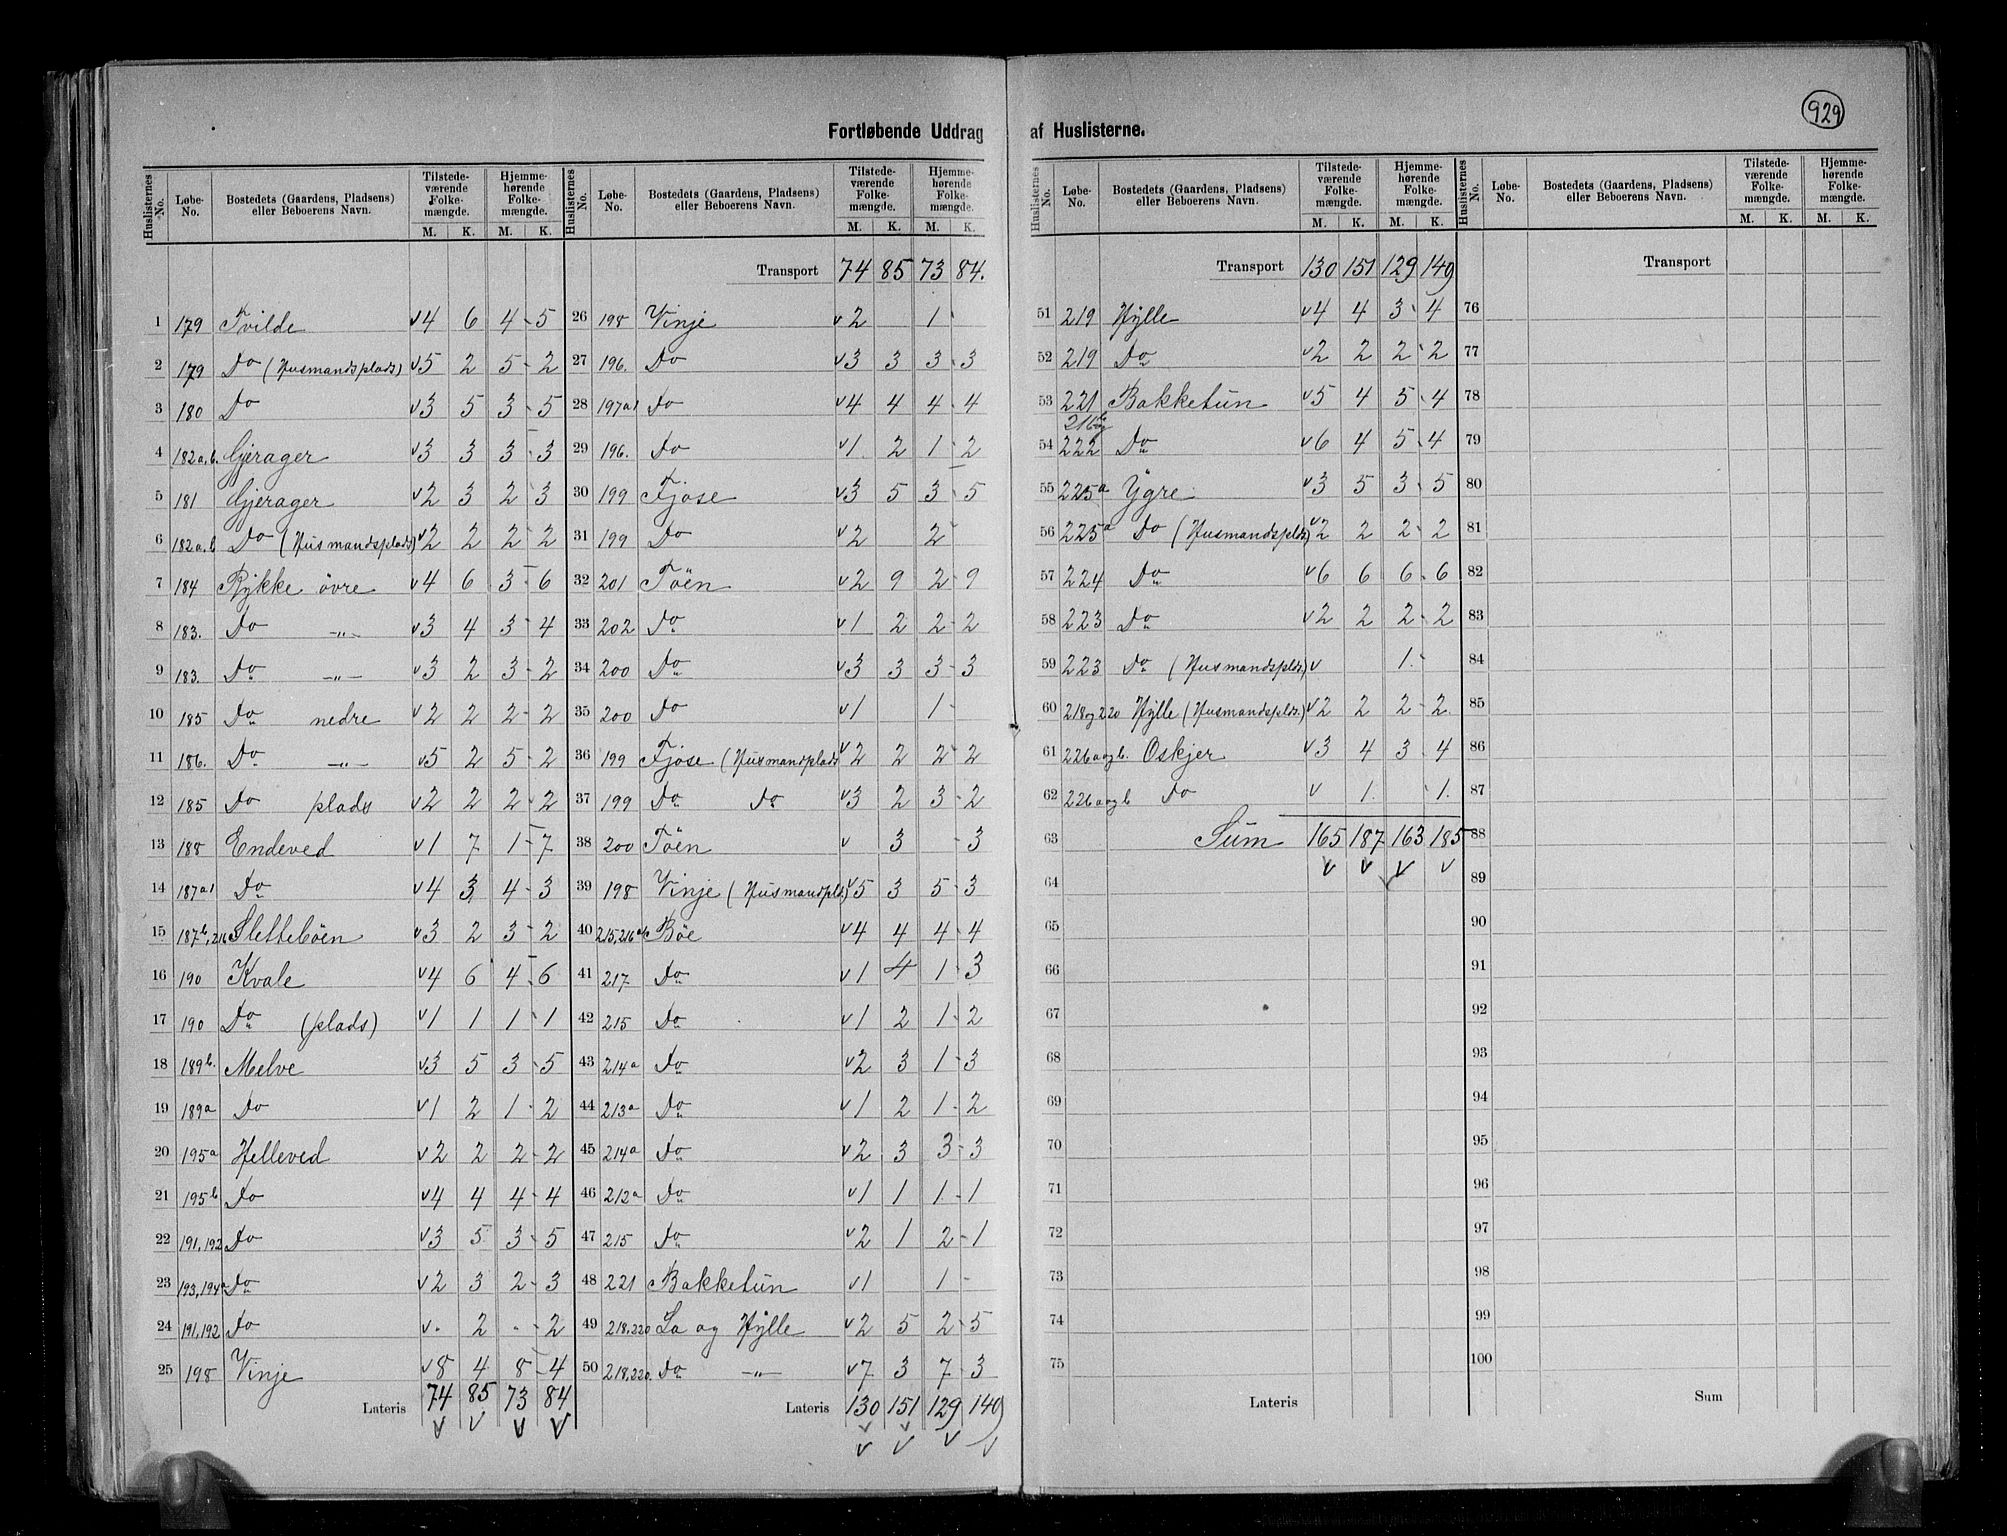 929
Fortløbende Uddrag af Huslisterne.
Huslisternes No. Løbe-No. Bostedets (Gaardens, Pladsens) eller Beboerens Navn. Tilstedeværende Folkemængde. M. K. Hjemmehørende Folkemængde. M. K.
1 179 Tvilde v4 6 4 - 5
2 179 Do (Husmandsplads) v5 2 5 - 2
3 180 Do v3 5 3 - 5
4 182a,b. Gjerager v3 3 3 - 3
5 181 Gjerager v2 3 2 - 3
6 182a,b Do (Husmandsplads) v2 2 2 - 2
7 184 Rykke övre v4 6 3 - 6
8 183. Do -„- v3 4 3 - 4
9 183. Do -„- v3 2 3 - 2
10 185 Do nedre v2 2 2 - 2
11 186. Do -„- v5 2 5 - 2
12 185 Do plads v2 2 2 - 2
13 188 Endeved v1 7 1 - 7
14 187a1 Do v4 3 4 - 3
15 187b, 216 Slettebøen v3 2 3 - 2
16 190 Kvale v4 6 4 - 6
17 190 Do (plads) v1 1 1 - 1
18 189b. Melve v3 5 3 - 5
19 189a Do v1 2 1 - 2
20 195a Helleved v2 2 2 - 2
21 195b Do v4 4 4 - 4
22 191,192 Do v3 5 3 - 5
23 193,194a Do v2 3 2 - 3
24 191,192 Do v. 2 . - 2
25 198 Vinje v8 4 8 - 4
Lateris 74 85 73 84
v v v v
Huslisternes No. Løbe-No. Bostedets (Gaardens, Pladsens) eller Beboerens Navn. Tilstedeværende Folkemængde. M. K. Hjemmehørende Folkemængde. M. K.
Transport 74 85 73 84.
26 198 Vinje v2 1 -
27 196. Do v3 3 3 - 3
28 197a1 Do v4 4 4 - 4
29 196. Do v1. 2 1 - 2
30 199 Fjose v3 5 3 - 5
31 199 Do v2 2 -
32 201 Töen v2 9 2 - 9
33 202 Do v1 2 2 - 2
34 200 Do v3 3 3 - 3
35 200 Do v1 1 -
36 199 Fjose (Husmandsplads v2 2 2 - 2
37 199 Do Do v3 2 3 - 2
38 200 Töen v 3 3
39 198 Vinje (Husmandpld.) v5 3 5 - 3
40 215,216a,c Böe v4 4 4 - 4
41 217. Do v1 4 1 - 3
42 215 Do v1 2 1 - 2
43 214a Do v2 3 1 - 3
44 213a Do v1 2 1 - 2
45 214a Do v2 3 3 - 3
46 212a Do v1 1 1 - 1
47 215 Do v2 1 2 - 1
48 221 Bakketun v1 1 -
49 218,220 La og Hylle v2 5 2 - 5
50 218,220. Do -„- v7 3 7 - 3
Lateris 130 151 129 149
v v v v
v v
Huslisternes No. Løbe-No. Bostedets (Gaardens, Pladsens) eller Beboerens Navn. Tilstedeværende Folkemængde. M. K. Hjemmehørende Folkemængde. M. K.
Transport 130 151 129 149
51 219 Hylle v4 4 3 - 4
52 219 Do v2 2 2 - 2
53 221 Bakketun v5 4 5 - 4
216b og
54 222 Do v6 4 5 - 4
55 225a Ygre v3 5 3 - 5
56 225a Do (Husmandspldz) v2 2 2 - 2
57 224 Do v6 6 6 - 6
58 223 Do v2 2 2 - 2
59 223 Do (Husmandspldz) v 1. -
60 218og220 Hylle (Husmandspldz.) v2 2 2 - 2.
61 226aogb. Oskjer v3 4 3 - 4
62 226aogb Do v 1. - 1.
63 Sum 165 187 163 185
v v v v
64
65
66
67
68
69
70
71
72
73
74
75
Lateris
Huslisternes No. Løbe-No. Bostedets (Gaardens, Pladsens) eller Beboerens Navn. Tilstedeværende Folkemængde. M. K. Hjemmehørende Folkemængde. M. K.
Transport
76
77
78
79
80
81
82
83
84
85
86
87
88
89
90
91
92
93
94
95
96
97
98
99
100
Sum